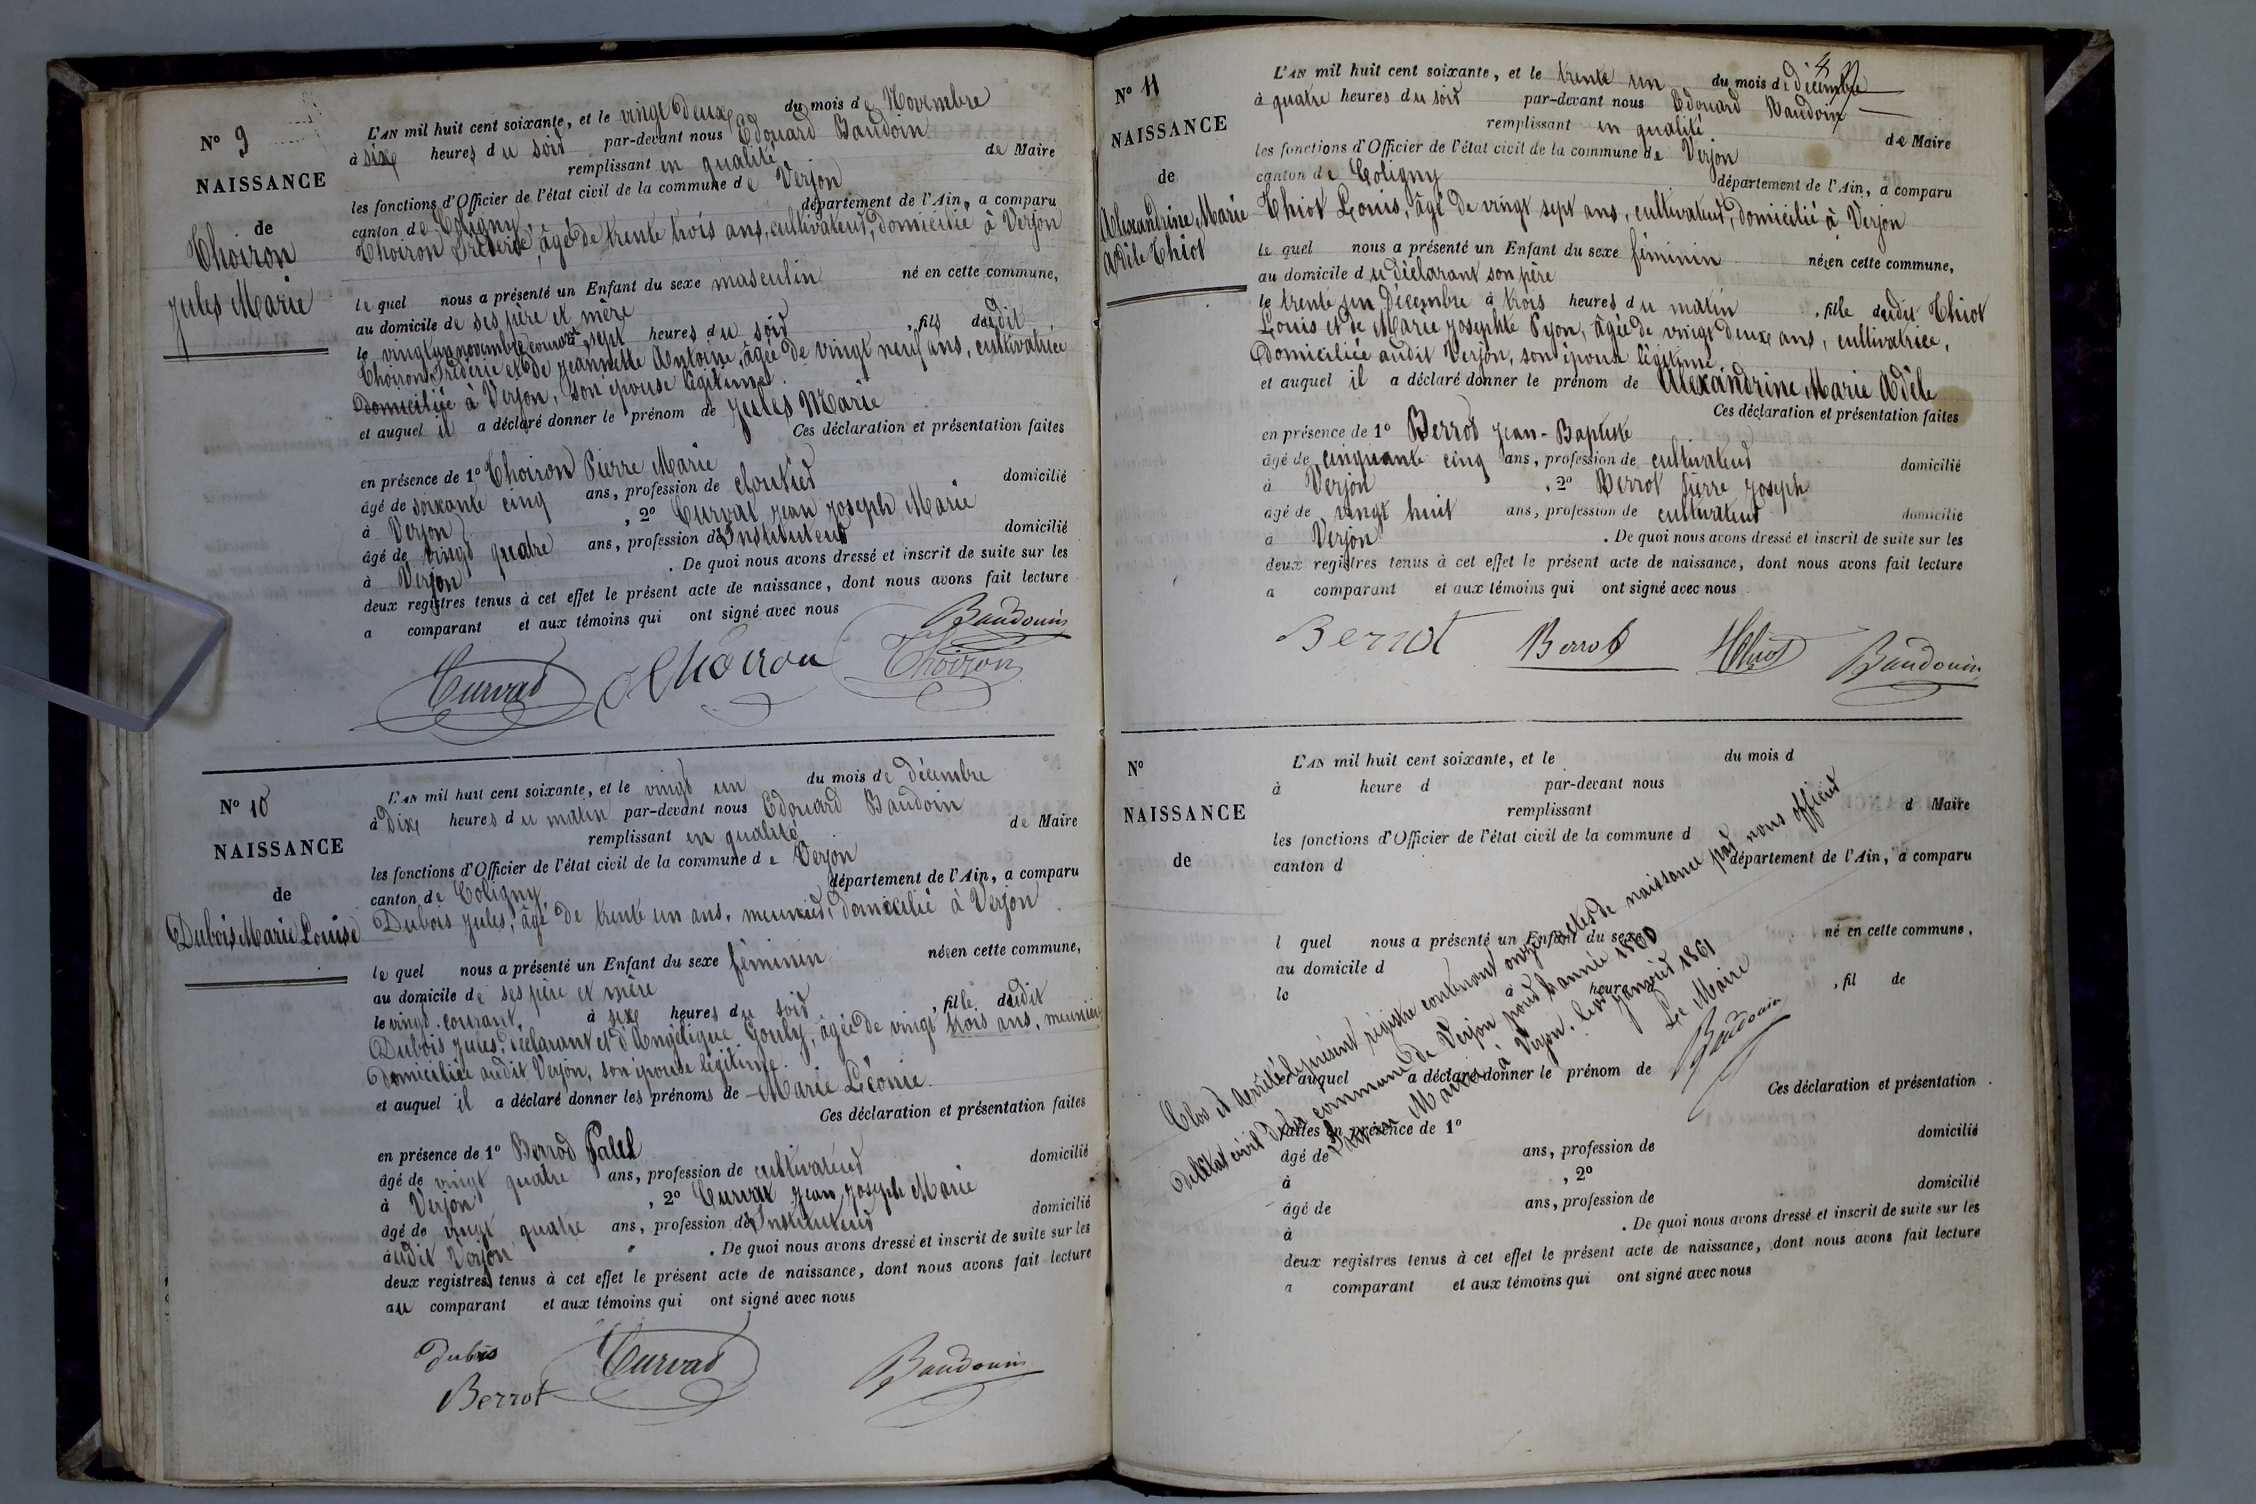 N° 9
NAISSANCE
de
Thoiron
Jules Marie
L'AN mil huit cent soixante, et le vingt deux du mois de Novembre
à six heures du soir par-devant nous Edouard Baudoin
remplissant en qualité de Maire
les fonctions d'Officier de l'état civil de la commune de Verjon
canton de Coligny département de l'Ain, a comparu
Thoiron Fréderic, âgé de trente trois ans, cultivateur, domicilié à Verjon
le quel nous a présenté un Enfant du sexe masculin né en cette commune,
au domicile de ses père et mère
le vingt un novembre courant à sept heures du soir, fils dudit
Thoiron Fréderic et de Jeannette Antoine, âgée de vingt neuf ans, cultivatrice
domiciliée à Verjon, son épouse légitime.
et auquel il a déclaré donner le prénom de Jules Marie
Ces déclaration et présentation faites
en présence de 1° Thoiron Pierre Marie
âgé de soixante cinq ans, profession de cloutier domicilié
à Verjon, 2° Curvat Jean Joseph Marie
âgé de vingt quatre ans, profession de Instituteur domicilié
à Verjon. De quoi nous avons dressé et inscrit de suite sur les
deux registres tenus à cet effet le présent acte de naissance, dont nous avons fait lecture
a comparant et aux témoins qui ont signé avec nous
Baudouin
Curvat Thoiron Thoiron
N° 10
NAISSANCE
de
Dubois Marie Louise
L'AN mil huit cent soixante, et le vingt un du mois de décembre
à Dix heures du matin par-devant nous Edouard Baudoin
remplissant en qualité de Maire
les fonctions d'Officier de l'état civil de la commune de Verjon
canton de Coligny département de l'Ain, a comparu
Dubois Jules, âgé de trente un ans, meunier, domicilié à Verjon
le quel nous a présenté un Enfant du sexe féminin née en cette commune,
au domicile de ses père et mère
le vingt courant, à six heures du soir, fille dudit
Dubois Jules, déclarant et d'Angélique Gouly, âgée de vingt trois ans, meunière
domiciliée audit Verjon, son épouse légitime.
et auquel il a déclaré donner les prénoms de Marie Léonie.
Ces déclaration et présentation faites
en présence de 1° Berrod
âgé de vingt quatre ans, profession de cultivateur domicilié
à Verjon, 2° Curvat Jean Joseph Marie
âgé de vingt quatre ans, profession de Instituteur domicilié
audit Verjon. De quoi nous avons dressé et inscrit de suite sur les
deux registres tenus à cet effet le présent acte de naissance, dont nous avons fait lecture
au comparant et aux témoins qui ont signé avec nous
Dubois Curvat Baudouin
Berrot
N° 11
NAISSANCE
de
Alexandrine Marie
Adèle Thiot
L'AN mil huit cent soixante, et le trente un du mois de décembre
à quatre heures du soir par-devant nous Edouard Baudoin
remplissant en qualité de Maire
les fonctions d'Officier de l'état civil de la commune de Verjon
canton de Coligny département de l'Ain, a comparu
Thiot Louis, âgé de vingt sept ans, cultivateur, domicilié à Verjon
le quel nous a présenté un Enfant du sexe féminin née en cette commune,
au domicile du déclarant son père
le trente un Décembre à trois heures du matin, fille dudit Thiot
Louis et de Marie Josephte Pyon, âgée de vingt deux ans, cultivatrice,
domiciliée audit Verjon, son épouse légitime.
et auquel il a déclaré donner le prénom de Alexandrine Marie Adèle
Ces déclaration et présentation faites
en présence de 1° Berrod Jean-Baptiste
âgé de cinquante cinq ans, profession de cultivateur domicilié
à Verjon, 2° Berrot Pierre Joseph
âgé de vingt huit ans, profession de cultivateur domicilié
à Verjon. De quoi nous avons dressé et inscrit de suite sur les
deux registres tenus à cet effet le présent acte de naissance, dont nous avons fait lecture
a comparant et aux témoins qui ont signé avec nous
Berrot Berrod Thiot Baudouin
N°
NAISSANCE
de
L'AN mil huit cent soixante, et le du mois d
à heure d par-devant nous
remplissant d Maire
les fonctions d'Officier de l'état civil de la commune d
canton d département de l'Ain, a comparu
l quel nous a présenté un Enfant du sexe né en cette commune,
au domicile d
le à heure , fil de
et auquel a déclaré donner le prénom de
Ces déclaration et présentation
faites en présence de 1°
âgé de ans, profession de domicilié
à , 2°
âgé de ans, profession de domicilié
à . De quoi nous avons dressé et inscrit de suite sur les
deux registres tenus à cet effet le présent acte de naissance, dont nous avons fait lecture
a comparant et aux témoins qui ont signé avec nous
Clos et arrêté le présent régistre contenant onze actes de naissance par nous officier
de l'état civil de la commune de Verjon pour l'année 1860
Fait en Mairie à Verjon, le 1er Janvier 1861
Le Maire
Baudouin